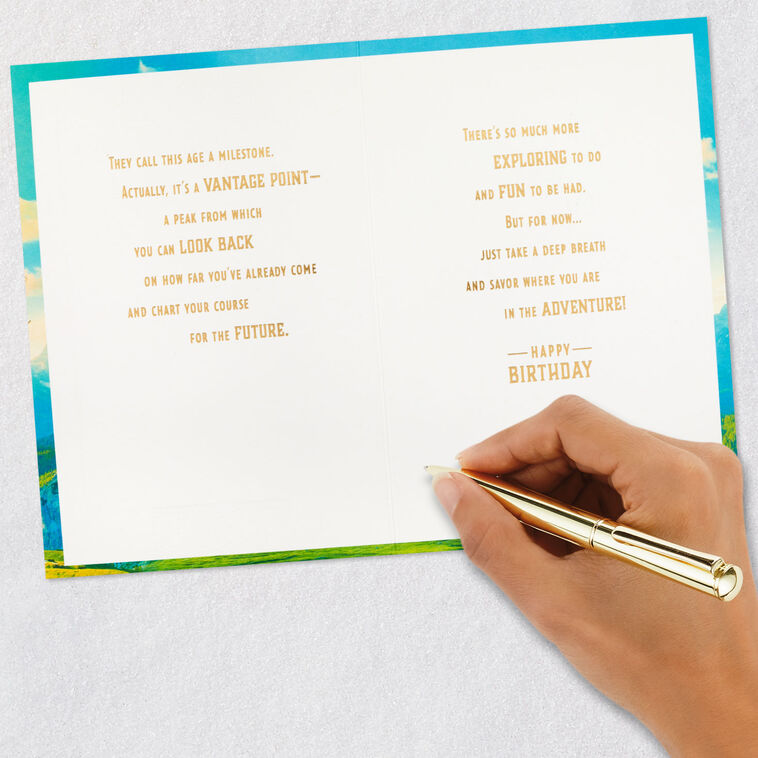 They call this age a milestone.
Actually, it's a VANTAGE POINT—
a peak from which
you can LOOK BACK
on how far you've already come
and chart your course
for the FUTURE.
There's so much more
EXPLORING to do
and FUN to be had.
But for now...
just take a deep breath
and savor where you are
in the ADVENTURE!
—HAPPY—
BIRTHDAY